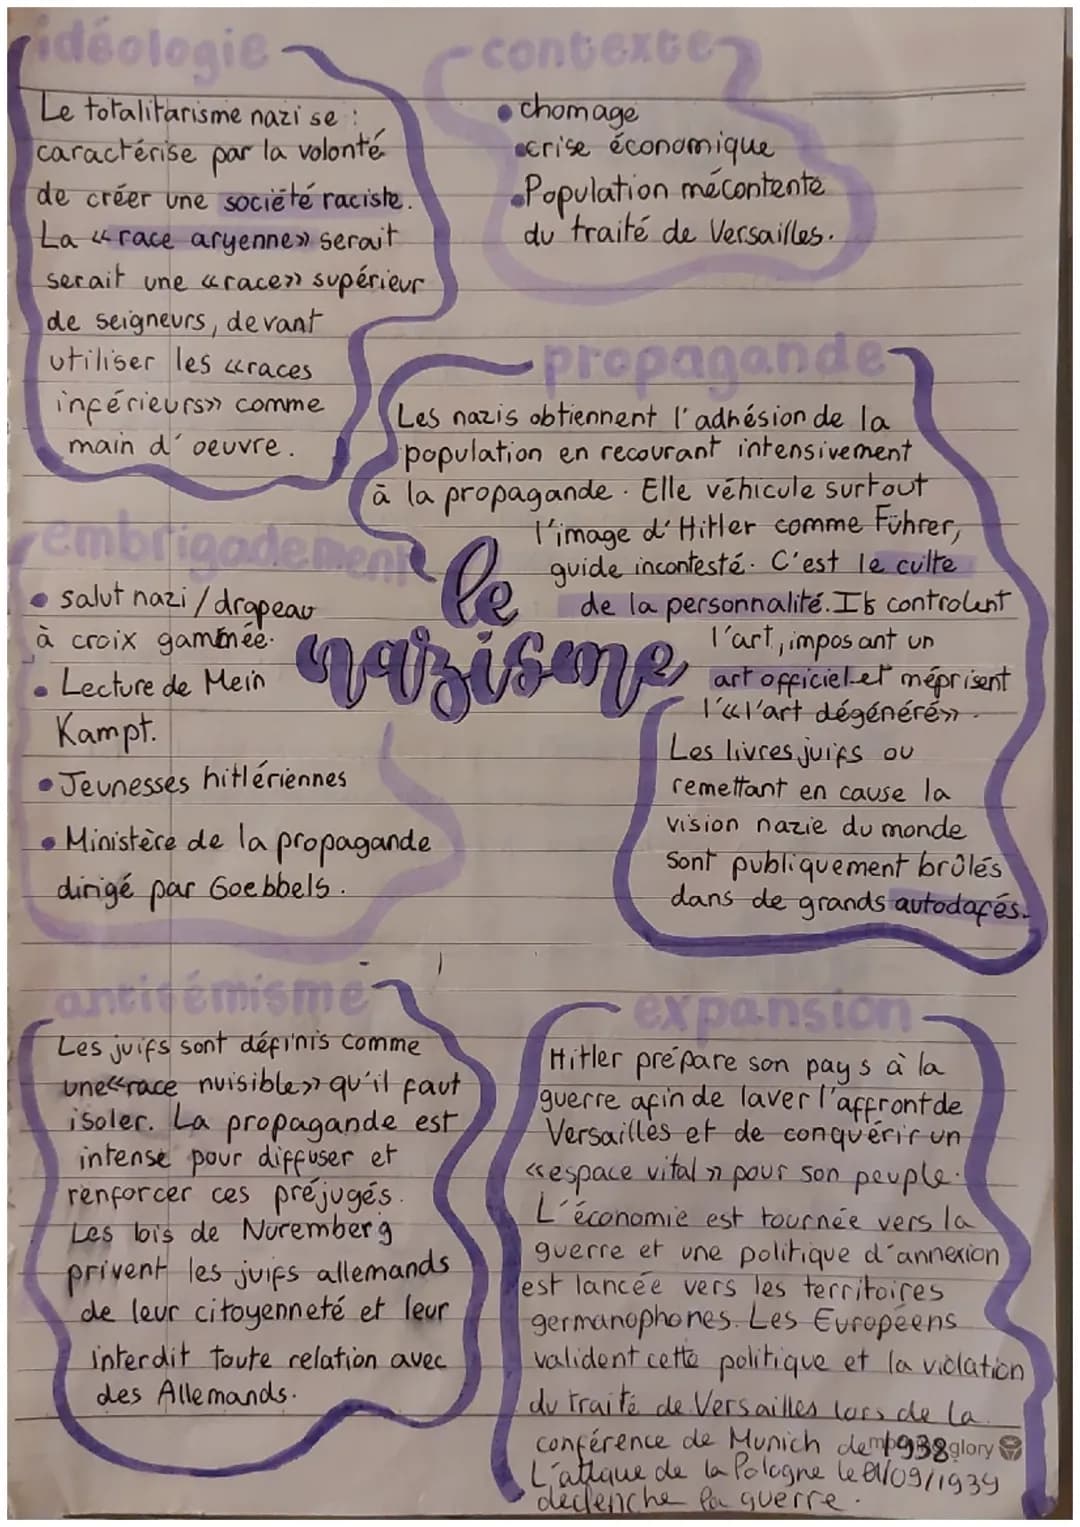 idéologie
Le totalitarisme nazi se :
caractérise par la volonté
de créer une société raciste.
La « race aryenne » serait
serait une « race » supérieur
de seigneurs, devant
utiliser les « races
inférieurs » comme
main d'oeuvre.
contexte
• chomage
• crise économique
• Population mécontente
du traité de Versailles.
propagande
Les nazis obtiennent l'adhésion de la
population en recourant intensivement
à la propagande. Elle véhicule surtout
l'image d'Hitler comme Führer,
guide incontesté. C'est le culte
de la personnalité. Ils controlent
l'art, imposant un
art officiel et méprisent
l'« l'art dégénéré ».
Les livres juifs ou
remettant en cause la
vision nazie du monde
sont publiquement brûlés
dans de grands autodafés.
le
nazisme
embrigadement
• salut nazi / drapeau
à croix gammée.
• Lecture de Mein
Kampt.
• Jeunesses hitlériennes
• Ministère de la propagande
dirigé par Goebbels.
antisémisme
Les juifs sont définis comme
une « race nuisible » qu'il faut
isoler. La propagande est
intense pour diffuser et
renforcer ces préjugés.
Les lois de Nuremberg
privent les juifs allemands
de leur citoyenneté et leur
interdit toute relation avec
des Allemands.
expansion
Hitler prépare son pays à la
guerre afin de laver l'affront de
Versailles et de conquérir un
« espace vital » pour son peuple.
L'économie est tournée vers la
guerre et une politique d'annexion
est lancée vers les territoires
germanophones. Les Européens
valident cette politique et la violation
du traité de Versailles lors de la
conférence de Munich de 1938
glory
L'attaque de la Pologne le 01/09/1939
declenche la guerre.